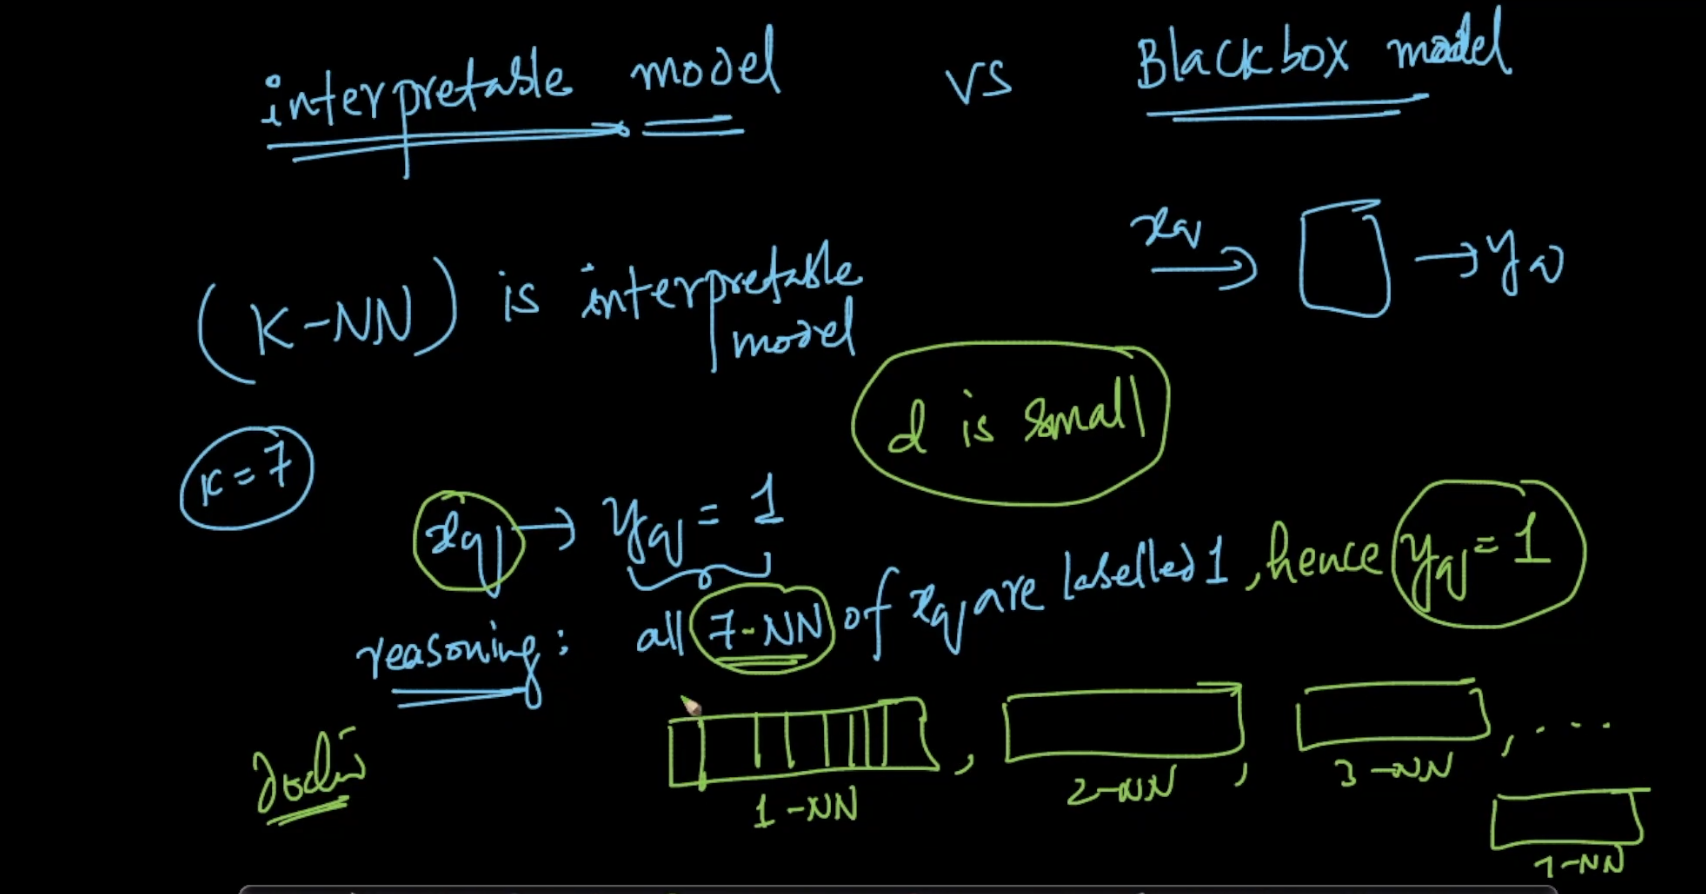 interpretable model vs Blackbox model
xq → → yq
(K-NN) is interpretable model
d is small
K=7
xq → yq = 1
reasoning: all 7-NN of xq are labelled 1, hence yq = 1
1-NN , 2-NN , 3-NN , ....
7-NN